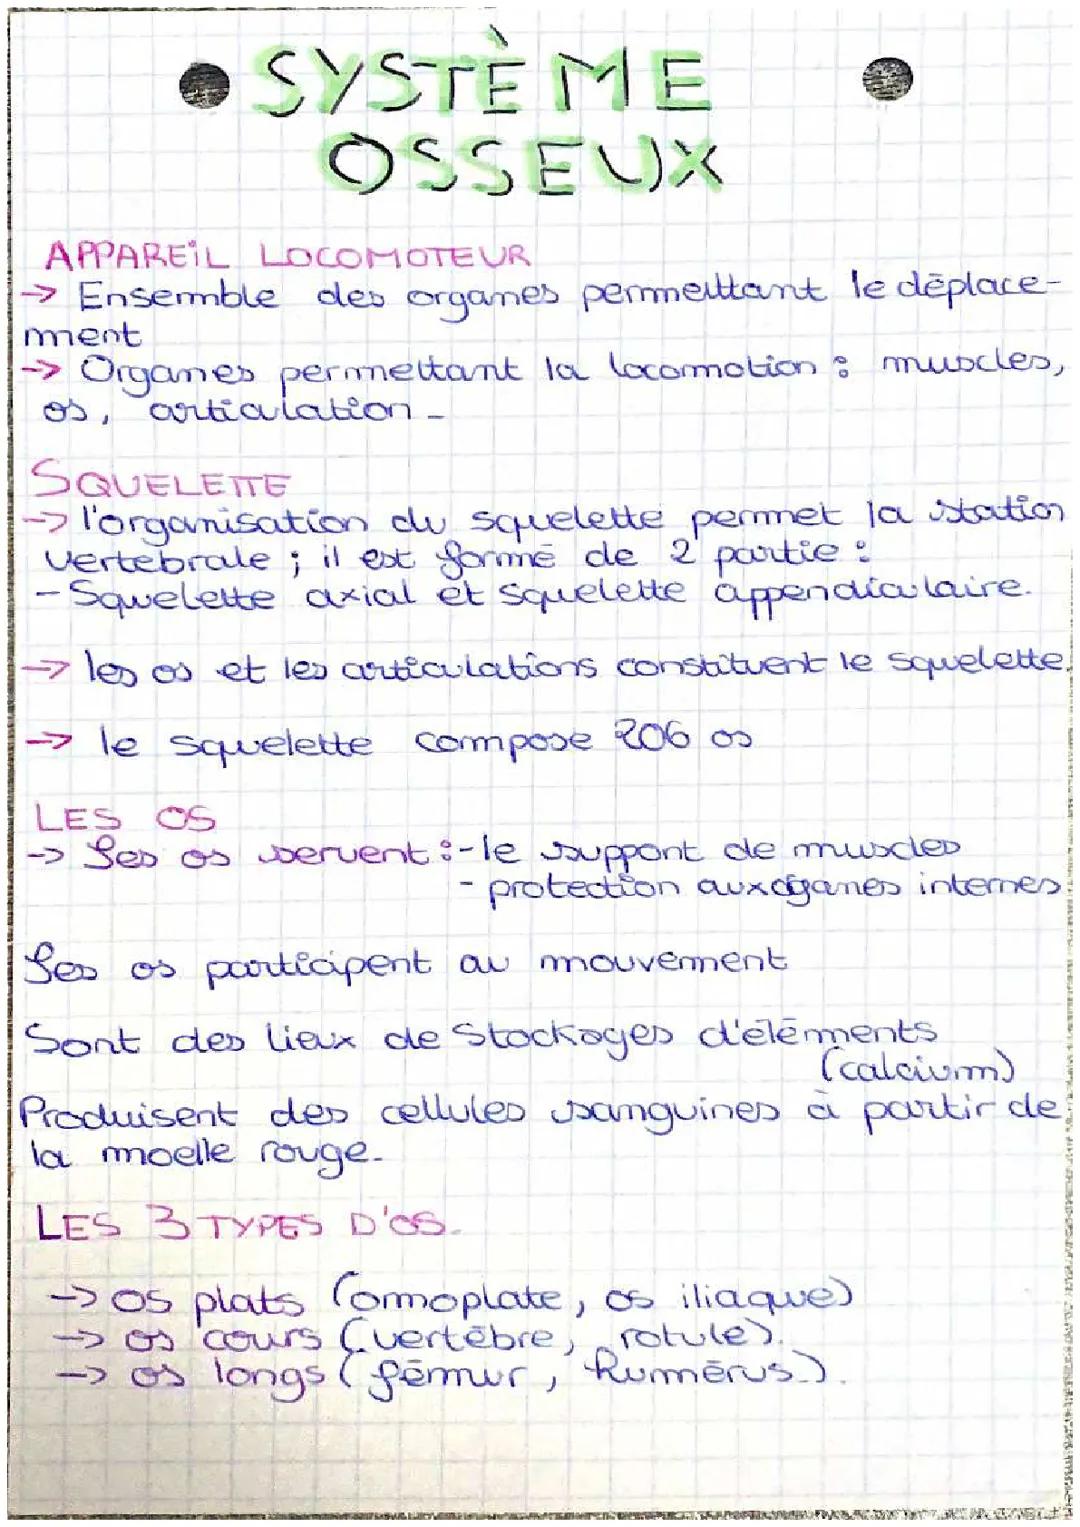 SYSTÈME
OSSEUX
APPAREIL LOCOMOTEUR
→ Ensemble des organes permettant le déplace-
ment
→ Organes permettant la locomotion : muscles,
os, articulation.
SQUELETTE
→ l'organisation du squelette permet la station
vertebrale ; il est formé de 2 partie :
- Squelette axial et squelette appendiculaire.
→ les os et les articulations constituent le squelette.
→ le squelette compose 206 os
LES OS
→ Les os servent : - le support de muscles
- protection aux organes internes
Les os participent au mouvement
Sont des lieux de stockages d'éléments
(calcium)
Produisent des cellules sanguines à partir de
la moelle rouge.
LES 3 TYPES D'OS.
→ os plats (omoplate, os iliaque)
→ os cours (vertèbre, rotule).
→ os longs (fémur, humérus.).